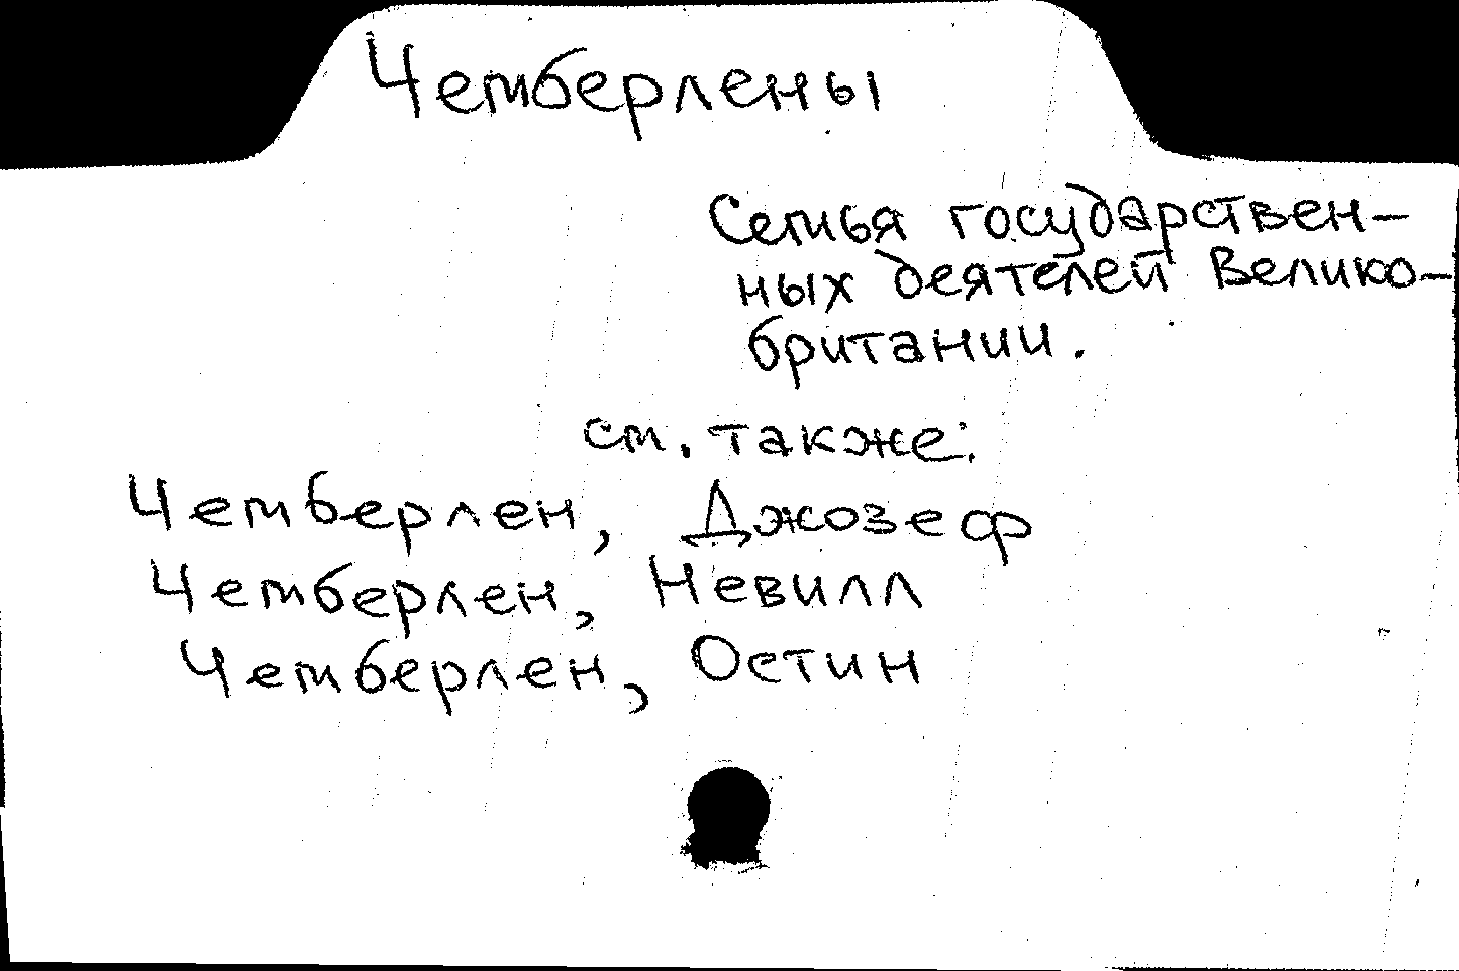 Чемберлены
Семья государствен-
ных деятелей Велико-
британии.
см. также:
Чемберлен, Джозеф
Чемберлен, Невилл
Чемберлен, Остин